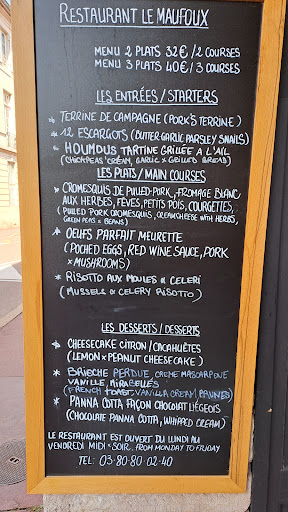 RESTAURANT LE MAUFOUX
MENU 2 PLATS 32€ / 2 COURSES
MENU 3 PLATS 40€ / 3 COURSES
LES ENTRÉES / STARTERS
* TERRINE DE CAMPAGNE (PORK'S TERRINE)
* 12 ESCARGOTS (BUTTER GARLIC PARSLEY SNAILS)
* HOUMOUS TARTINE GRILLÉE A L'AIL
(CHICKPEAS' CREAM, GARLIC & GRILLED BREAD)
LES PLATS / MAIN COURSES
* CROMESQUIS DE PULLED-PORK, FROMAGE BLANC
AUX HERBES, FÈVES, PETITS POIS, COURGETTES,
(PULLED PORK CROMESQUIS, CREAMCHEESE WITH HERBS,
GREEN PEAS & BEANS)
* OEUFS PARFAIT MEURETTE
(POCHED EGGS, RED WINE SAUCE, PORK
& MUSHROOMS)
* RISOTTO AUX MOULES & CELERI
(MUSSELS & CELERY RISOTTO)
LES DESSERTS / DESSERTS
* CHEESECAKE CITRON / CACAHUÈTES
(LEMON & PEANUT CHEESECAKE)
* BRIOCHE PERDUE, CREME MASCARPONE
VANILLE, MIRABELLES
(FRENCH TOAST, VANILLA CREAM, PRUNES)
* PANNA COTTA FAÇON CHOCOLAT LIÉGEOIS
(CHOCOLATE PANNA COTTA, WHIPPED CREAM)
LE RESTAURANT EST OUVERT DU LUNDI AU
VENDREDI MIDI & SOIR, FROM MONDAY TO FRIDAY
TEL: 03-80-80-02-40